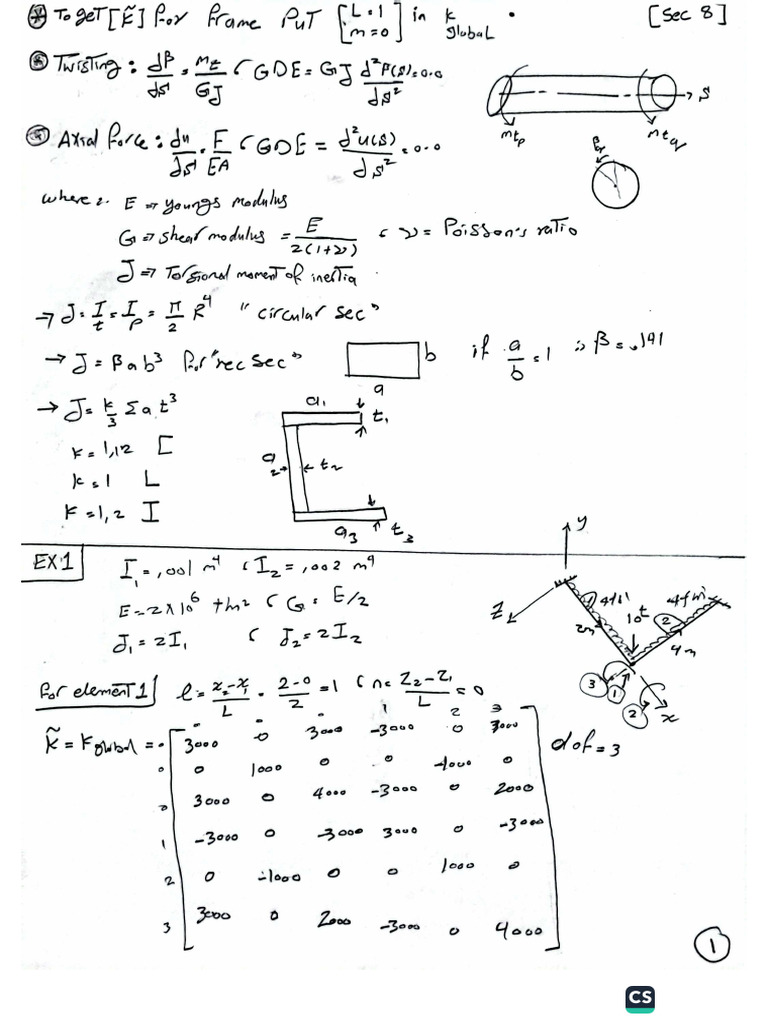 ⊛ To get [k̃] for frame put [L=1 m=0] in k global • [Sec 8]
⊛ Twisting: dβ/ds = mt/GJ , GDE = GJ d²β(s)/ds² = 0.0
S
mtp mtq
⊛ Axial force: du/ds = F/EA , GDE = d²u(s)/ds² = 0.0
where: E ⇒ youngs modulus
G ⇒ shear modulus = E/2(1+ν) , ν = Poisson's ratio
J ⇒ Torsional moment of inertia
→ J = I t = I p = π/2 R⁴ "circular sec"
→ J = β a b³ for "rec sec" b a if a/b = 1 ∴ β = .141
→ J = k/3 Σ a t³
k = 1,12 [
k = 1 L
k = 1,2 I
a1 t1
a2 t2
a3 t3
EX1 I1 = ,001 m⁴ , I2 = ,002 m⁴
E = 2×10⁶ t/m² , G = E/2
J1 = 2I1 , J2 = 2I2
y Z x
1 2m 10t 2 4m
3 1 2
for element 1 l = (x2-x1)/L = (2-0)/2 = 1 , n = (Z2-Z1)/L = 0
k̃ = k global =
0 0 0 1 2 3
0 3000 0 3000 -3000 0 3000
0 0 1000 0 0 -1000 0
0 3000 0 4000 -3000 0 2000
1 -3000 0 -3000 3000 0 -3000
2 0 -1000 0 0 1000 0
3 3000 0 2000 -3000 0 4000
dof = 3
1
CS